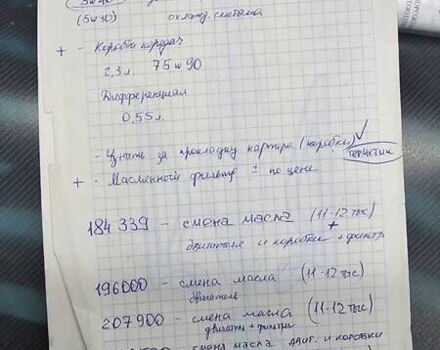 (5w30) охлажд. система
+ - Коробка передач
2,3 л. 75w90
Дифференциал
0,55 л.
Узнать за прокладку картера (коробки) ✓
герметик
+ - Масленный фильтр ± по цене
184 339 - смена масла (11-12 тыс)
двигателя и коробки + фильтр
196000 - смена масла (11-12 тыс)
двигатель
207900 - смена масла (11-12 тыс)
двигатель + фильтры
смена масла двиг. и коробки